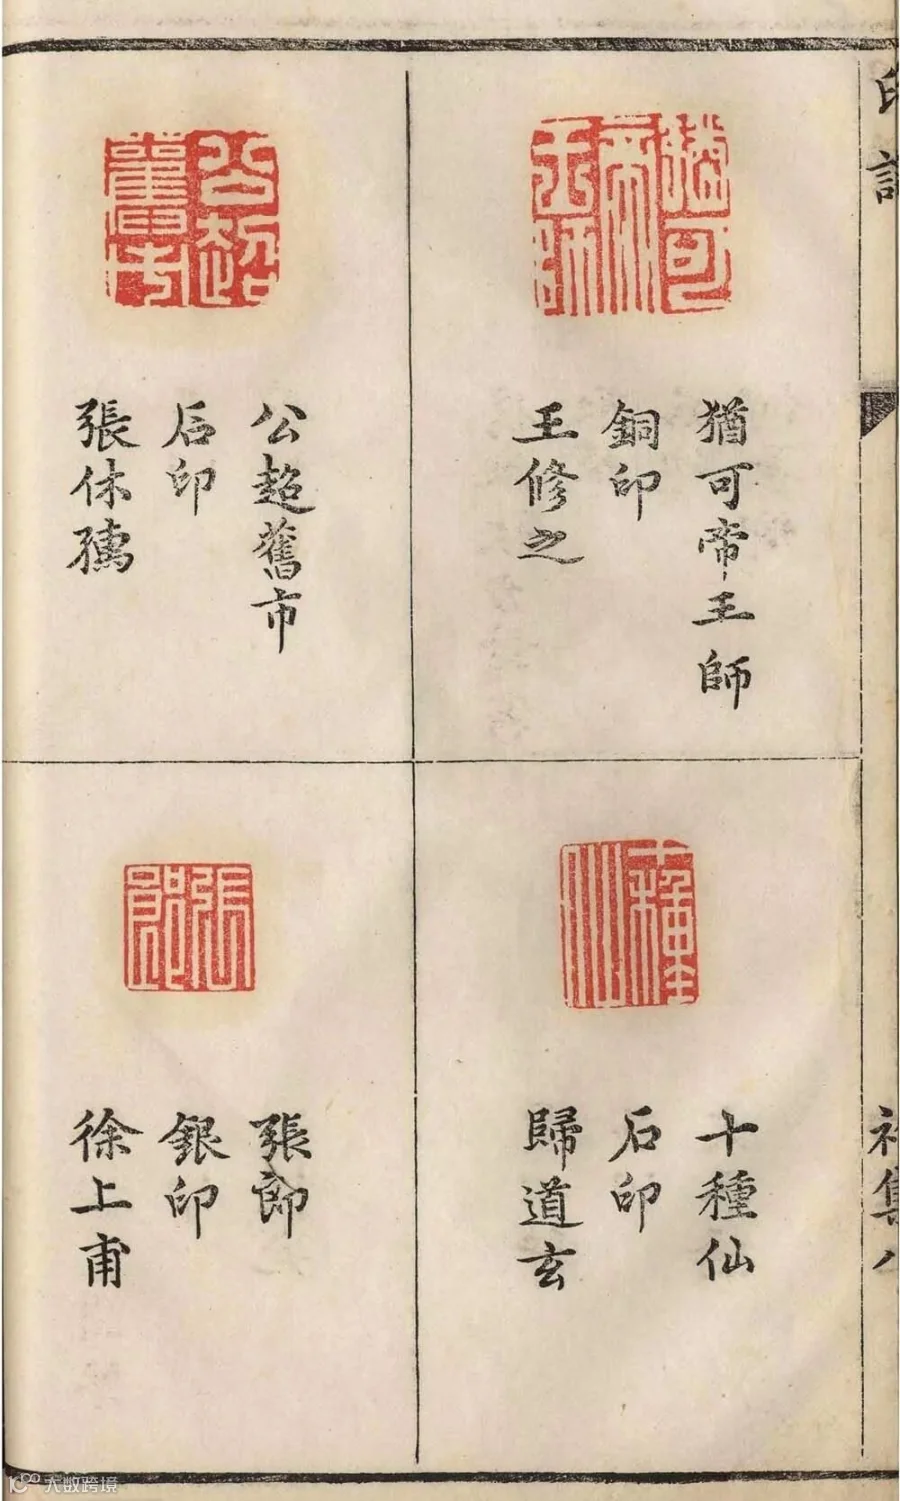 猶可帝王師
銅印
王修之
公超舊市
石印
張休孺
十種仙
石印
歸道玄
張郎
銀印
徐上甫
大数跨境